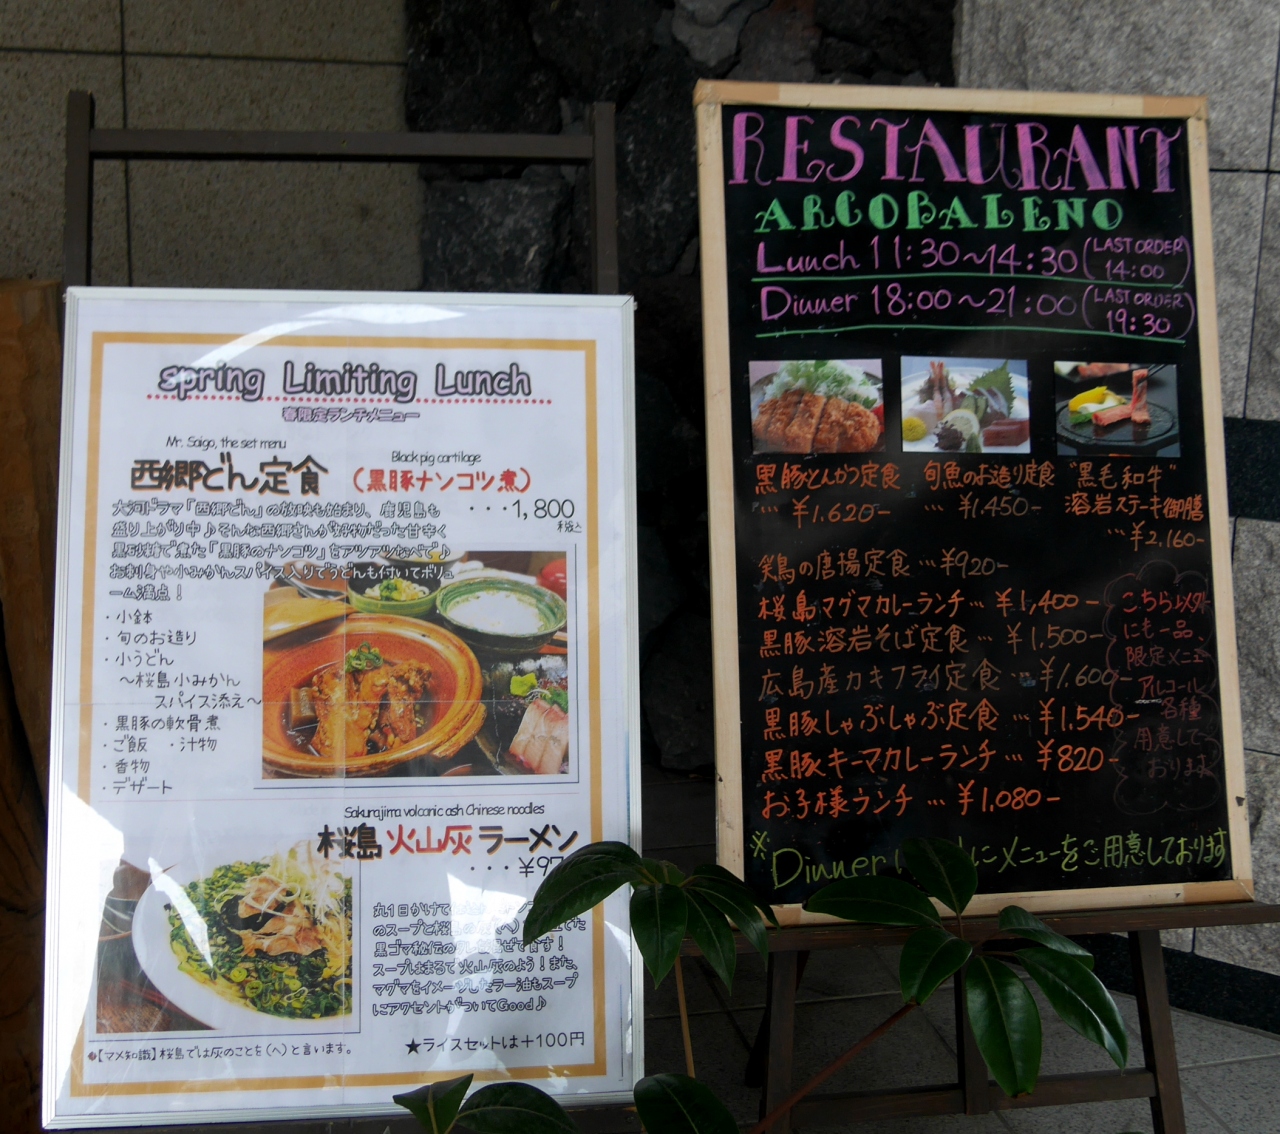 spring Limiting Lunch
春限定ランチメニュー
Mr. Saigo, the set menu
西郷どん定食
Black pig cartilage
(黒豚ナンコツ煮)
・・・1,800
税込
大河ドラマ「西郷どん」の放映も始まり、鹿児島も
盛り上がり中♪そんな西郷さんが好物だった甘辛く
黒砂糖で煮た「黒豚のナンコツ」をアツアツなべで♪
お刺身や小みかんスパイス入りでうどんも付いてボリュ
ーム満点！
・小鉢
・旬のお造り
・小うどん
～桜島小みかん
スパイス添え～
・黒豚の軟骨煮
・ご飯 ・汁物
・香物
・デザート
Sakurajima volcanic ash Chinese noodles
桜島火山灰ラーメン
・・・¥97
丸1日かけて
のスープと桜島
黒ゴマ秘伝の
スープはまるで火山灰のよう！また、
マグマをイメージしたラー油もスープ
にアクセントがついてGood♪
★ライスセットは+100円
【マメ知識】桜島では灰のことを(へ)と言います。
RESTAURANT
ARCOBALENO
Lunch 11:30~14:30 (LAST ORDER 14:00)
Dinner 18:00~21:00 (LAST ORDER 19:30)
黒豚とんかつ定食
… ¥1.620-
旬魚のお造り定食
… ¥1,450-
"黒毛和牛"
溶岩ステーキ御膳
…¥2,160-
鶏の唐揚定食 … ¥920-
桜島マグマカレーランチ… ¥1,400-
黒豚溶岩そば定食… ¥1,500-
広島産カキフライ定食 … ¥1,600-
黒豚しゃぶしゃぶ定食 … ¥1,540-
黒豚キーマカレーランチ … ¥820-
お子様ランチ … ¥1,080-
こちら以外
にも一品、
限定メニュー
アルコール
各種
用意して
おります
※Dinner
にメニューをご用意しております